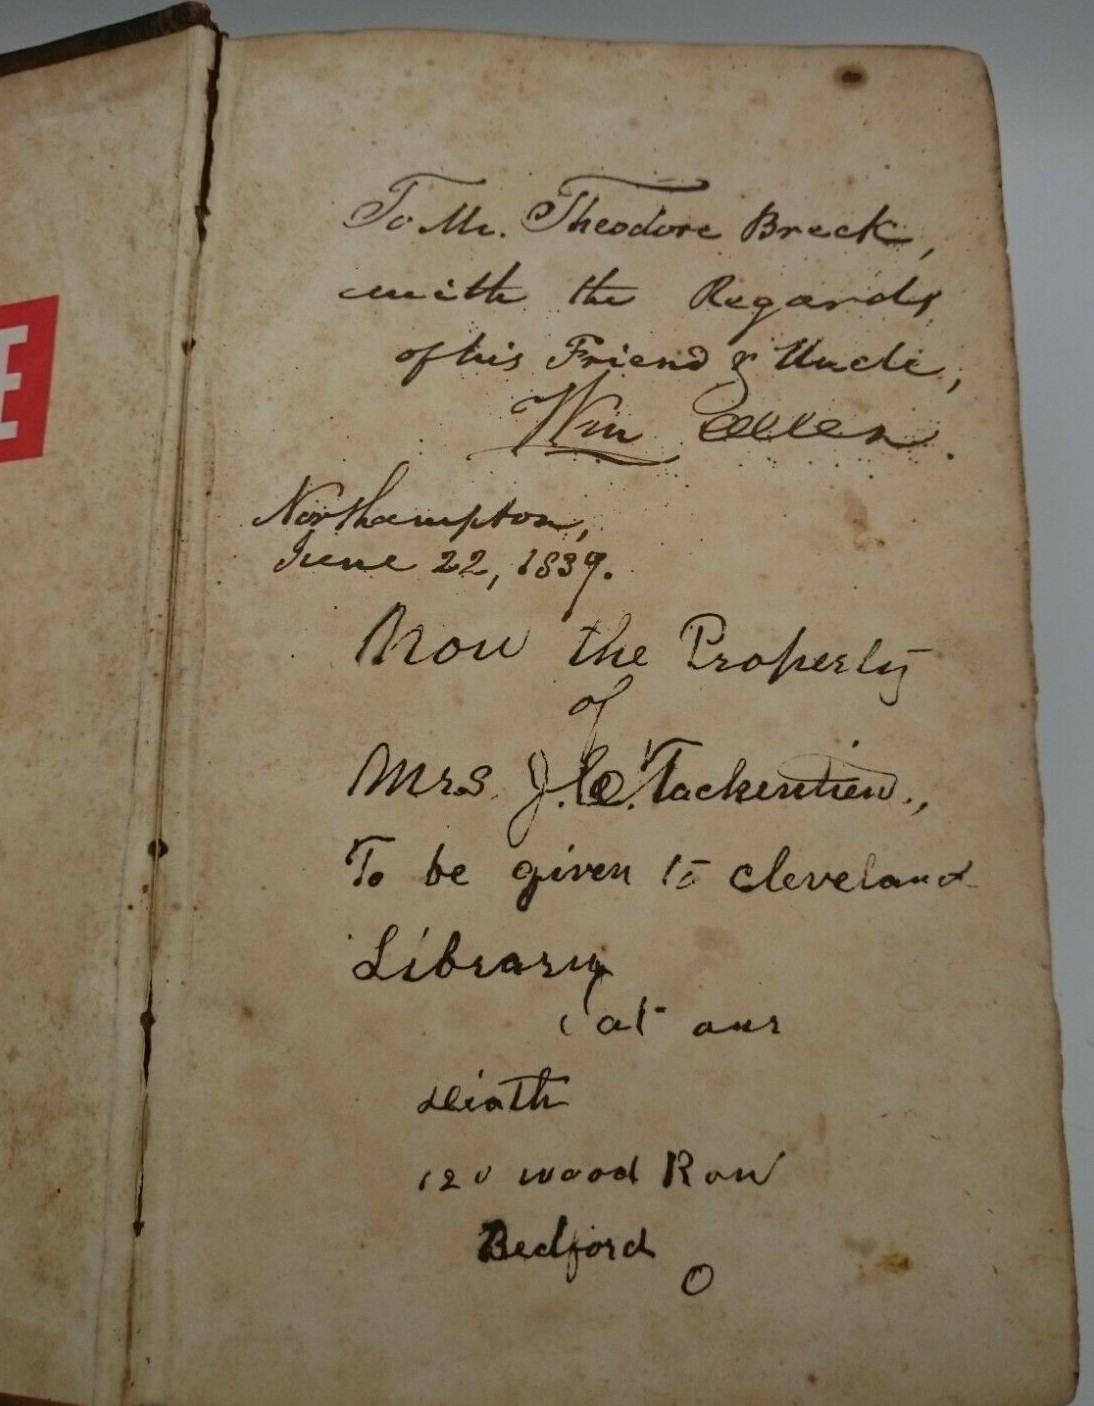 E
To Mr. Theodore Breck,
with the Regards
of his Friend & Uncle,
Wm Allen.
Northampton,
June 22, 1839.
Now the Property
of
Mrs. J. C.
To be given to Cleveland
Library
at our
death
120 wood Row
Bedford
O